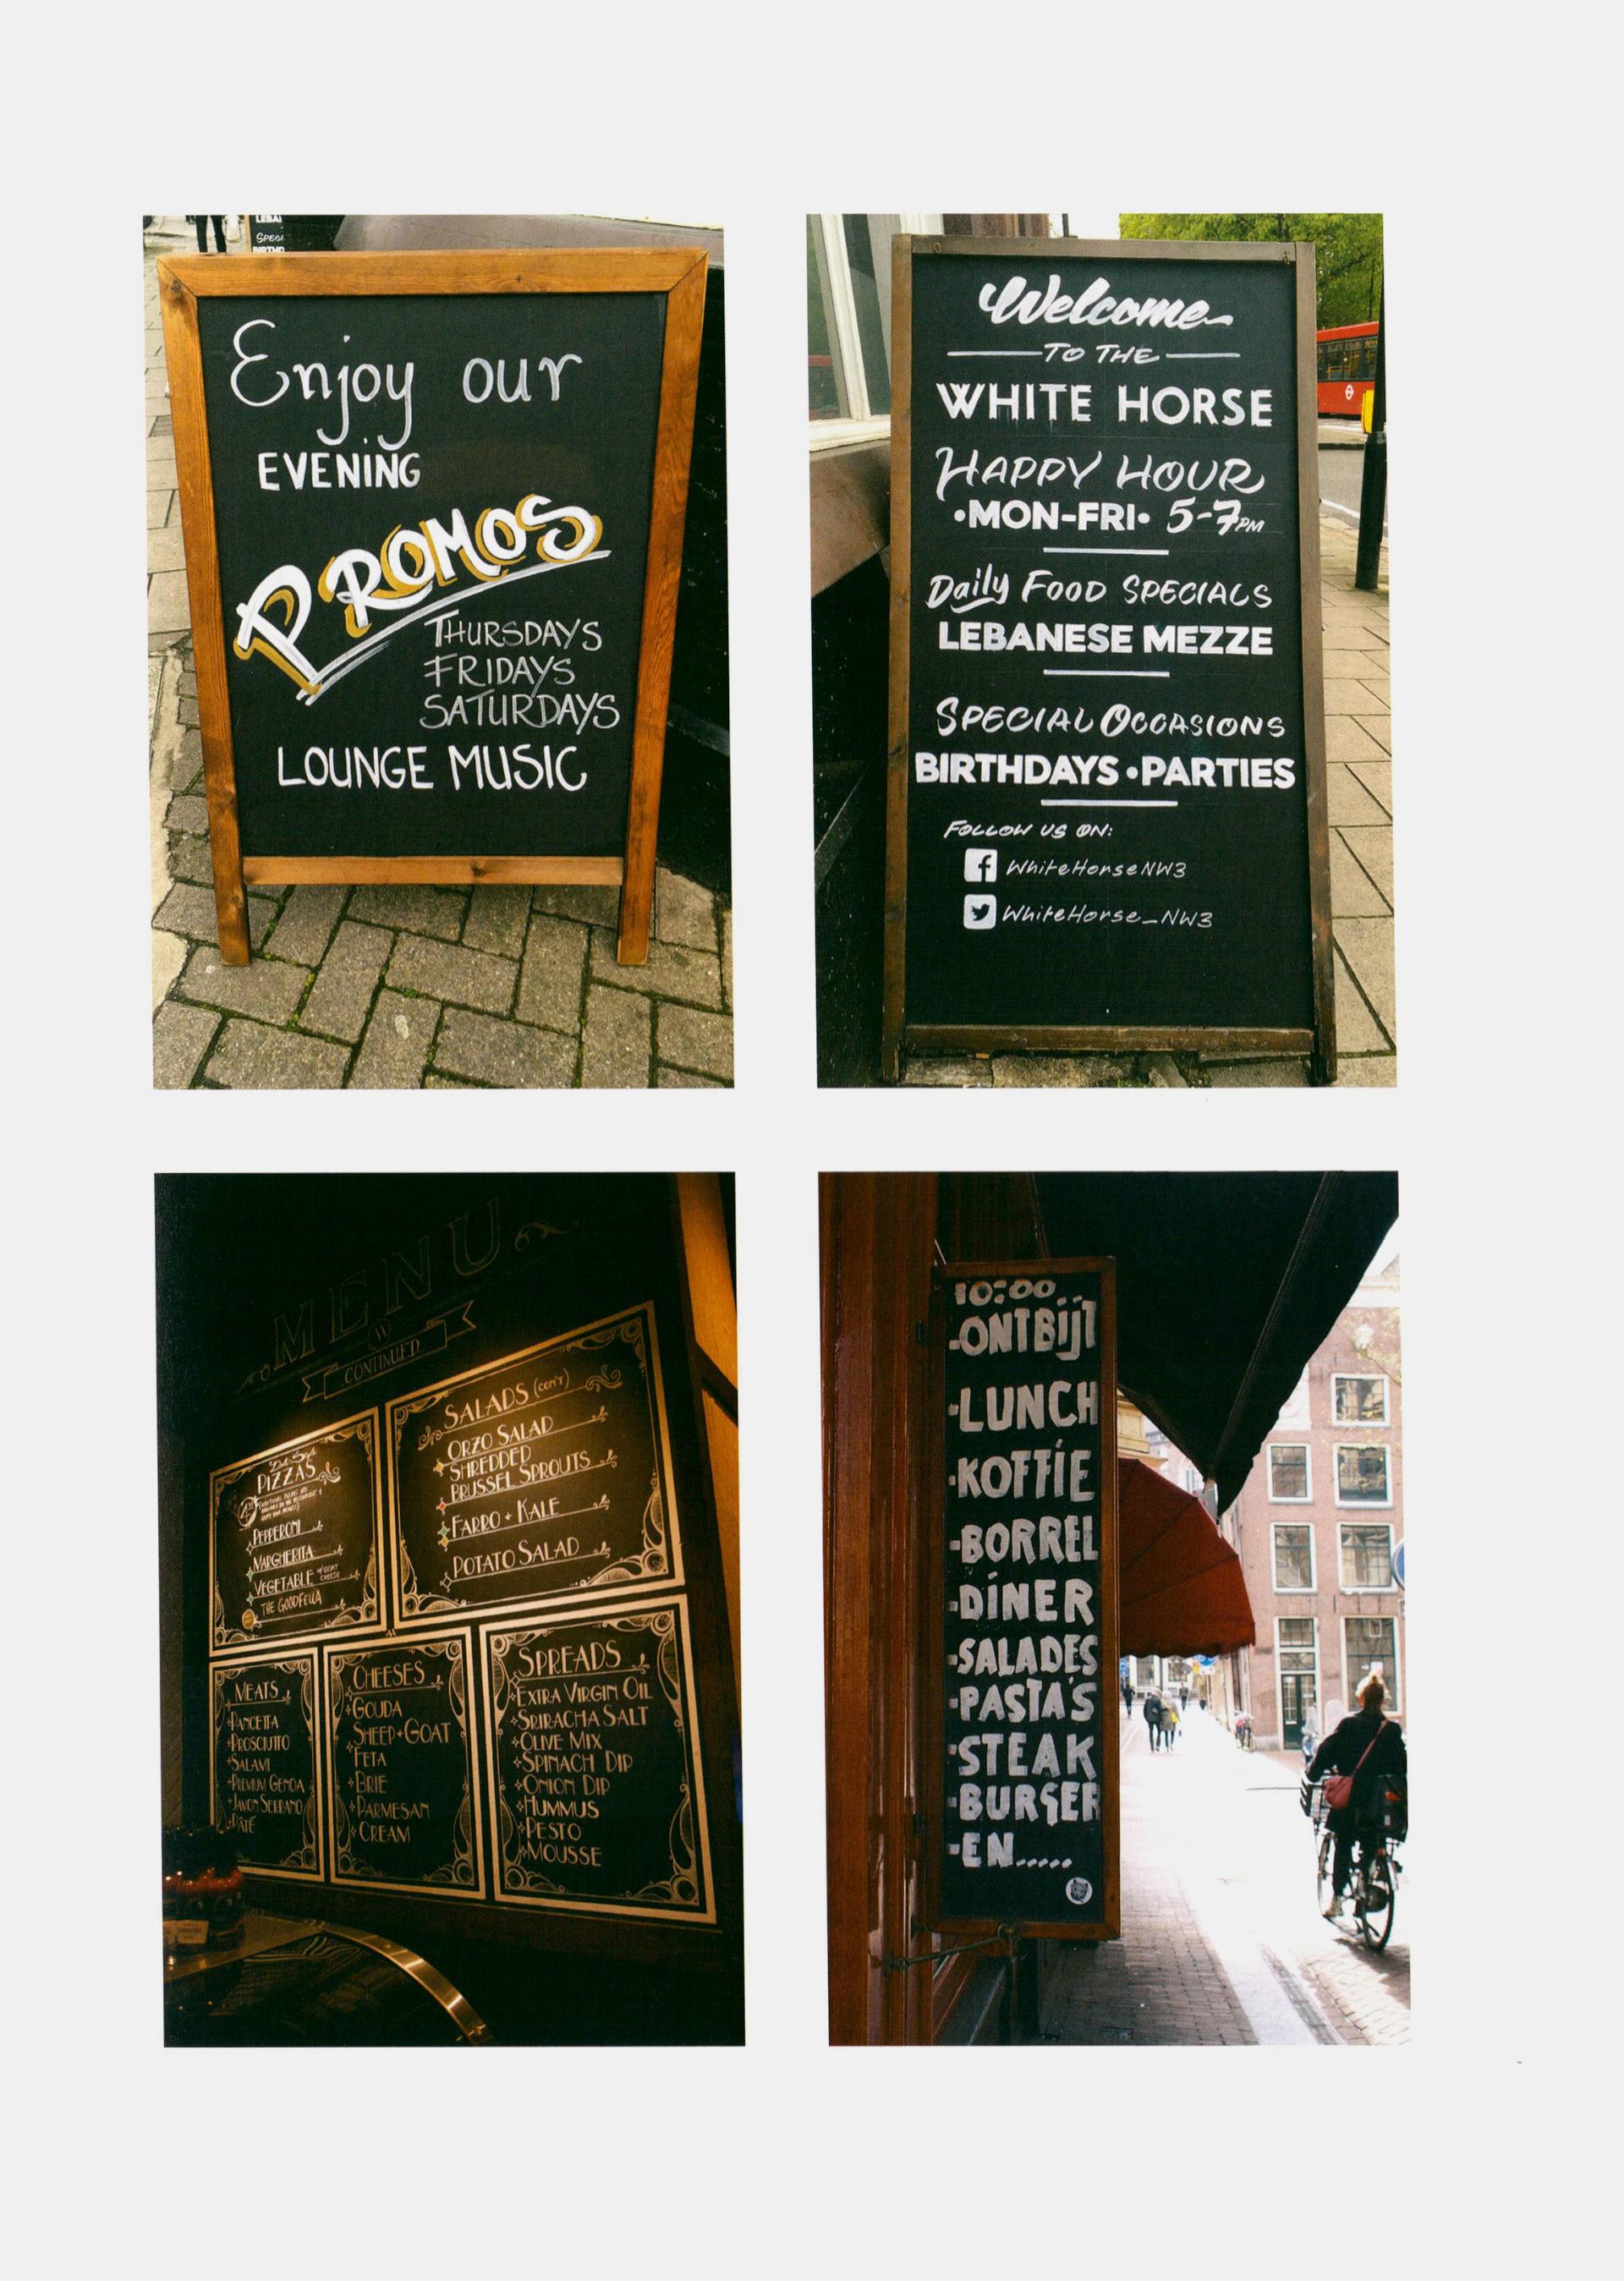 LEBA
SPECI
BIRTHD
Enjoy our
EVENING
PROMOS
THURSDAYS
FRIDAYS
SATURDAYS
LOUNGE MUSIC
Welcome
TO THE
WHITE HORSE
HAPPY HOUR
•MON-FRI• 5-7PM
Daily FOOD SPECIALS
LEBANESE MEZZE
SPECIAL OCCASIONS
BIRTHDAYS • PARTIES
FOLLOW US ON:
WhiteHorseNW3
WhiteHorse_NW3
MENU
CONTINUED
PIZZAS
PEPPERONI
MARGHERITA
VEGETABLE W/GOAT CHEESE
THE GOODFELLA
SALADS (CON'T)
ORZO SALAD
SHREDDED
BRUSSEL SPROUTS
FARRO + KALE
POTATO SALAD
MEATS
PANCETTA
PROSCIUTTO
SALAMI
PREMIUM GENOA
JAMON SERRANO
PÂTÉ
CHEESES
GOUDA
SHEEP+GOAT
FETA
BRIE
PARMESAN
CREAM
SPREADS
EXTRA VIRGIN OIL
SRIRACHA SALT
OLIVE MIX
SPINACH DIP
ONION DIP
HUMMUS
PESTO
MOUSSE
10:00
-ONTBIJT
-LUNCH
-KOFFIE
-BORREL
-DINER
-SALADES
-PASTA'S
-STEAK
-BURGER
-EN.....